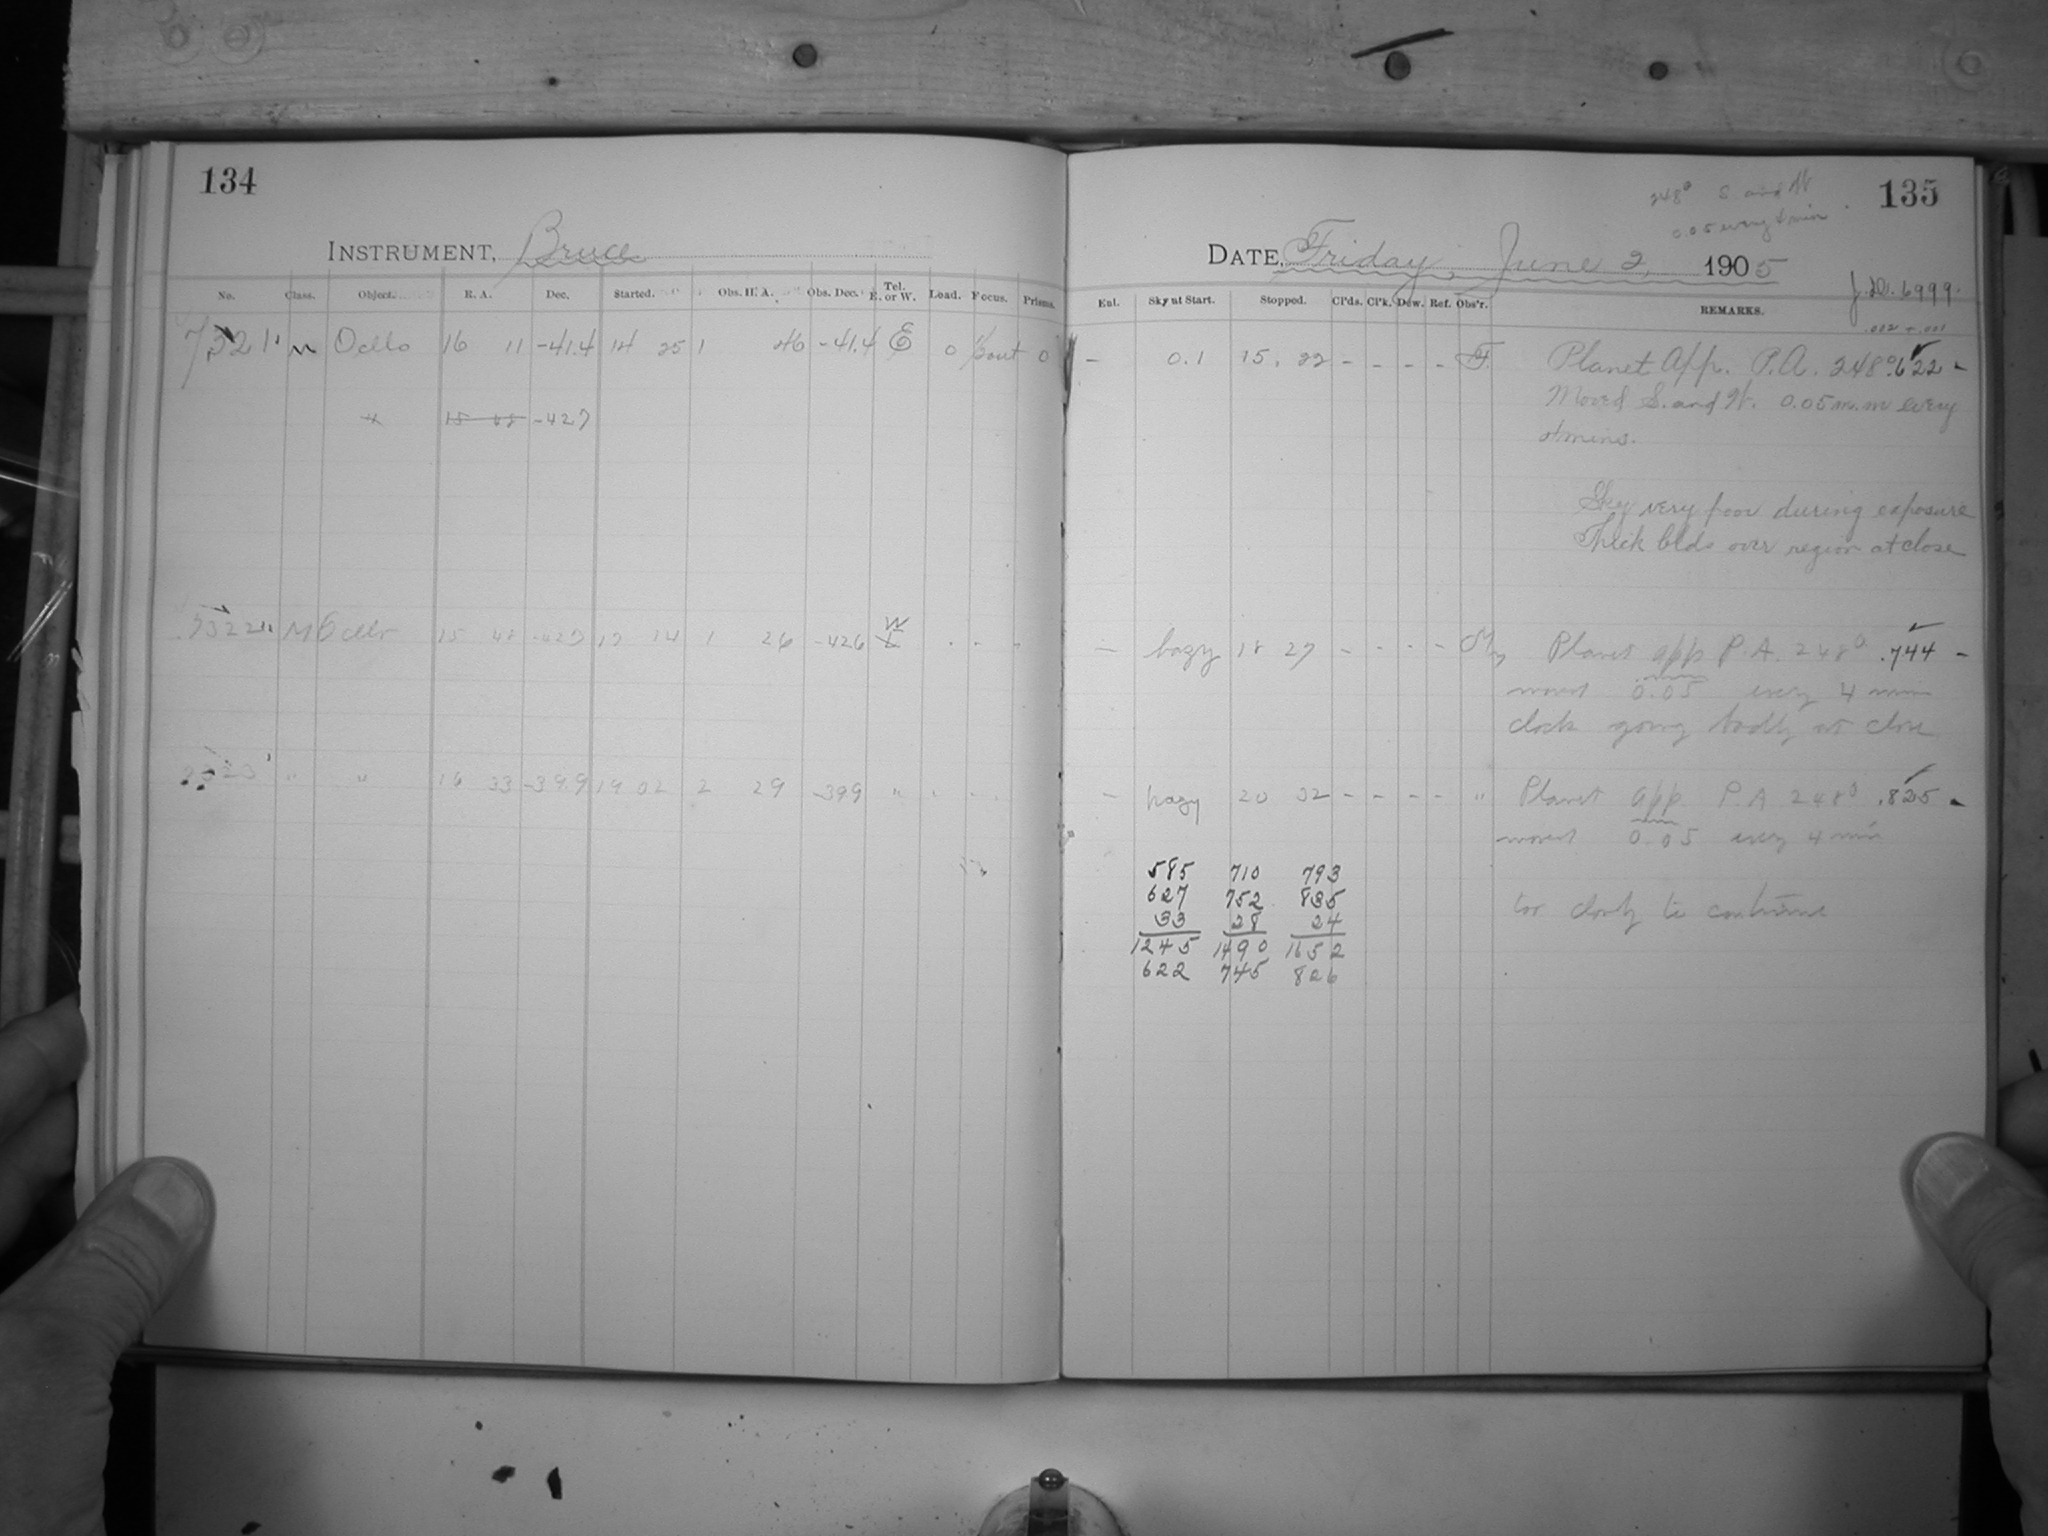 134
INSTRUMENT, Bruce
No. Class. Object. R. A. Dec. Started. Obs. H. A. Obs. Dec. Tel. E. or W. Load. Focus. Prisms.
7321 M 16 11 -41.4 14 25 1 46 -41.4 E 0 0
15 48 -427
7322 M 15 48 -427 17 14 1 26 -426 W
7323 " " 16 33 -39.9 19 02 2 29 -399 "
248° S. and W
0.05 every 4 min
135
DATE, Friday, June 2, 1905
J.D. 6999.
Ent. Sky at Start. Stopped. Cl'ds. Cl'k. Dew. Ref. Obs'r. REMARKS.
.002 + .001
- 0.1 15. 22 - - - - F. Planet App. P.A. 248° .622 -
Moved S. and W. 0.05 m.m every
4 mins.
Sky very poor during exposure
Thick clds over region at close
- hazy 18 27 - - - - Planet app P.A. 248° .744 -
moved 0.05 every 4 min
clock going badly at close
- hazy 20 32 - - - - " Planet app P.A 248° .825 -
moved 0.05 every 4 min
585 710 793
627 752 835
33 28 24
1245 1490 1652
622 745 826
too cloudy to continue